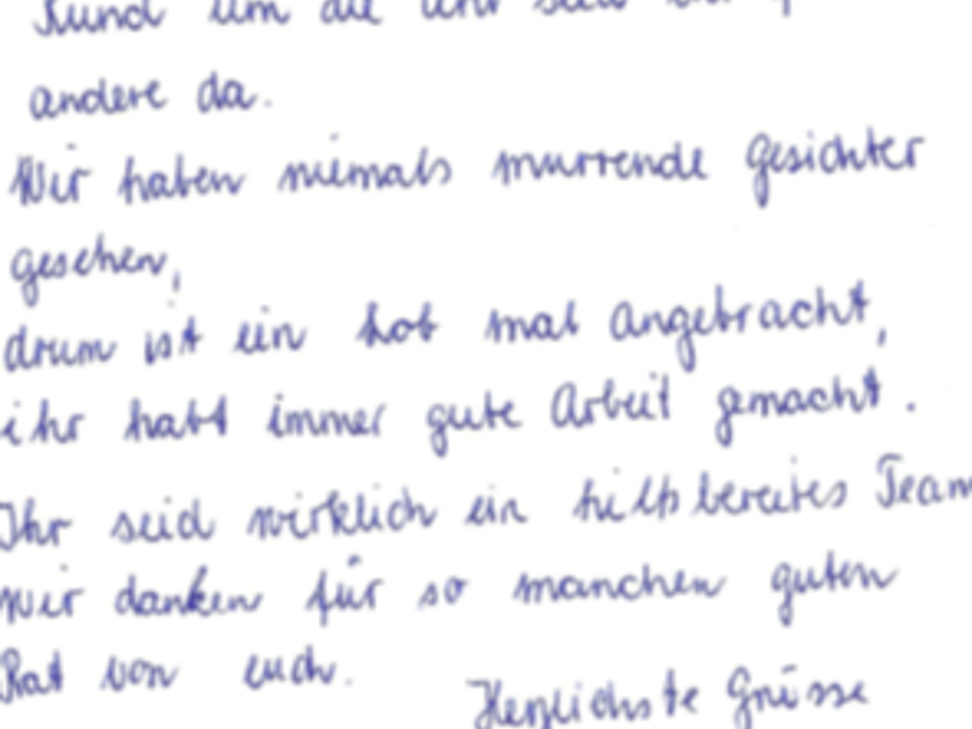 Rund um die Uhr seid ihr für
andere da.
Wir haben niemals murrende Gesichter
gesehen,
drum ist ein hob mal angebracht,
ihr habt immer gute Arbeit gemacht.
Ihr seid wirklich ein hilfsbereites Team
wir danken für so manchen guten
Rat von euch.
Herzlichste Grüsse